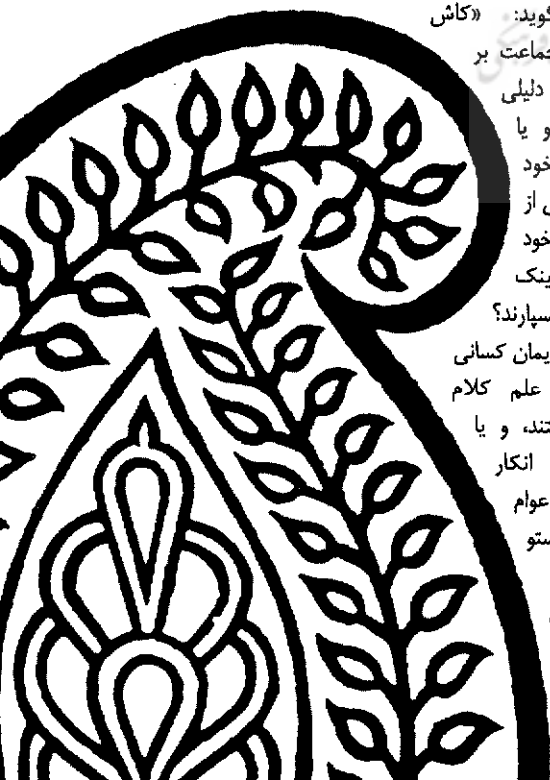 گوید: «کاش
جماعت بر
دلیلی
و یا
خود
ی از
خود
ینک
سپارند؟
یمان کسانی
علم کلام
تند، و یا
انکار
عوام
ستو